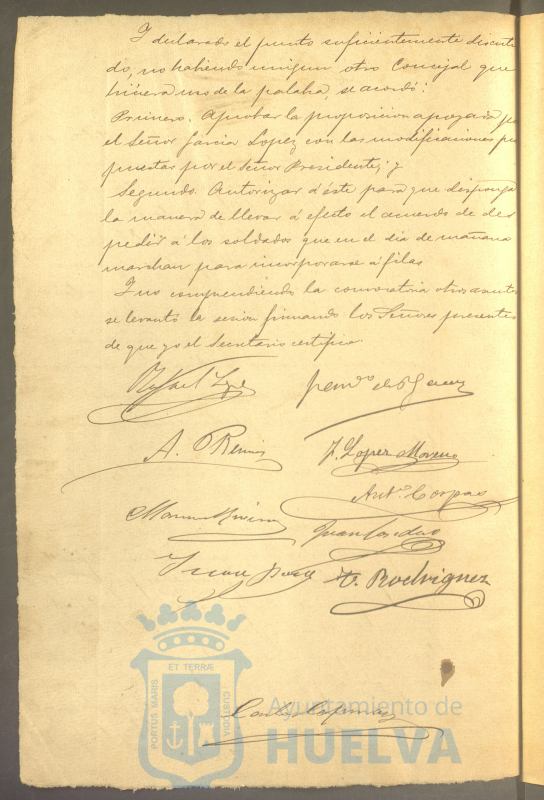 Y declarado el punto suficientemente discuti
do, no habiendo ningun otro Concejal que
hiciera uso de la palabra, se acordó:
Primero. Aprobar la proposicion apoyada p
el Señor Garcia Lopez con las modificaciones pr
puestas por el Señor Presidente; y
Segundo. Autorizar á éste para que disponga
la manera de llevar á efecto el acuerdo de des
pedir á los soldados que en el dia de mañana
marchan para incorporarse á filas
Y no comprendiendo la convocatoria otros asunto
se levantó la sesion firmando los Señores presentes
de que yo el Secretario certifico.
A.
J. Lopez Moreno
Ant.º Corpas
H. Rodriguez
ET TERRÆ
PORTUS MARIS
CUSTODIA
Ayuntamiento de
HUELVA